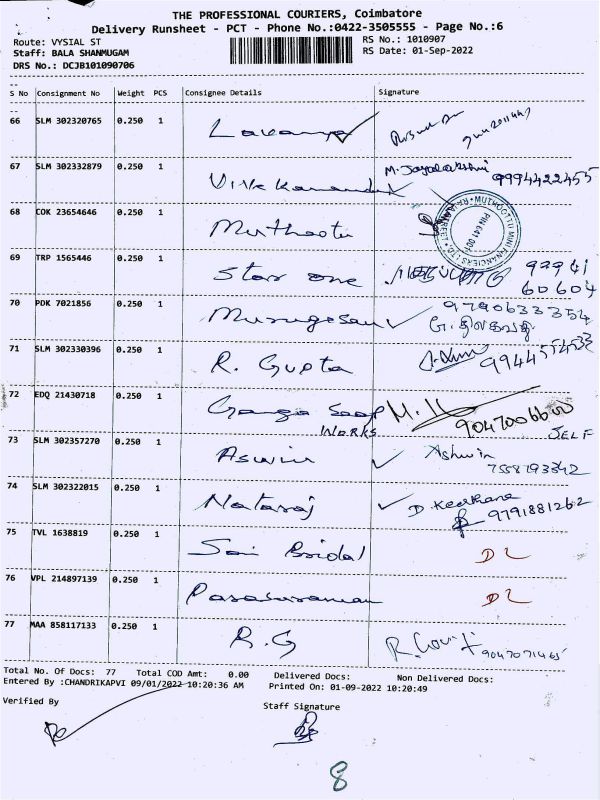 THE PROFESSIONAL COURIERS, Coimbatore
Delivery Runsheet - PCT - Phone No.:0422-3505555 - Page No.:6
Route: VYSIAL ST
RS No.: 1010907
Staff: BALA SHANMUGAM
RS Date: 01-Sep-2022
DRS No.: DCJB101090706
S No Consignment No Weight PCS Consignee Details Signature
66 SLM 302320765 0.250 1 Lavanya
67 SLM 302332879 0.250 1 Vivekanandan M. Jayalakshmi 9994422455
68 COK 23654646 0.250 1 Muthootu
MUTHOOTTU MINI FINANCIERS LTD. PIN 641 001
69 TRP 1565446 0.250 1 Star one 97941
60604
70 PDK 7021856 0.250 1 Murugesan 9790633354
71 SLM 302330396 0.250 1 R. Gupta
72 EDQ 21430718 0.250 1 Ganga Soap
WORKS
9047006600
SELF
73 SLM 302357270 0.250 1 Aswin Ashwin
7558193342
74 SLM 302322015 0.250 1 Nataraj
9791881262
75 TVL 1638819 0.250 1 Sai Bridal DL
76 VPL 214897139 0.250 1 Parasuraman DL
77 MAA 858117133 0.250 1 R.G
9047071465
Total No. Of Docs: 77 Total COD Amt: 0.00 Delivered Docs: Non Delivered Docs:
Entered By :CHANDRIKAPVI 09/01/2022 10:20:36 AM Printed On: 01-09-2022 10:20:49
Verified By
Staff Signature
8